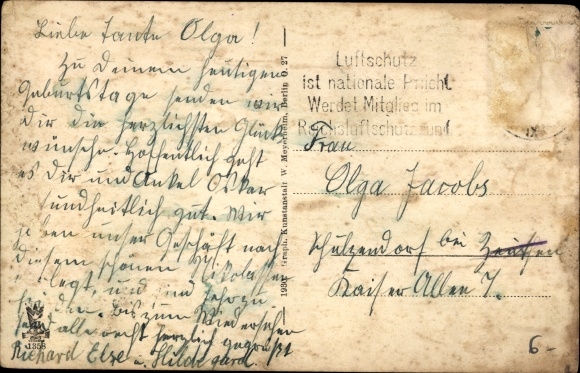 Liebe Tante Olga!
Zu Deinem heutigen
Geburtstage senden wir
Dir die herzlichsten Glück
wünsche. Hoffentlich geht
es Dir und Onkel Oskar
sundheitlich gut. Wir
ben unser Geschäft nach
diesem schönen Nikolassee
legt, und sehr zu
den. bis zum Wiedersehen
alle recht herzlich gegrüßt
Richard Else u. Hildegard.
1358
1930: Graph. Kunstanstalt W. Meyerheim, Berlin O. 27
Luftschutz
ist nationale Pflicht
Werdet Mitglied im
Reichsluftschutzbund
IX
Frau
Olga Jacobs
Schulzendorf bei Zeuthen
Kaiser Allee 7.
6-